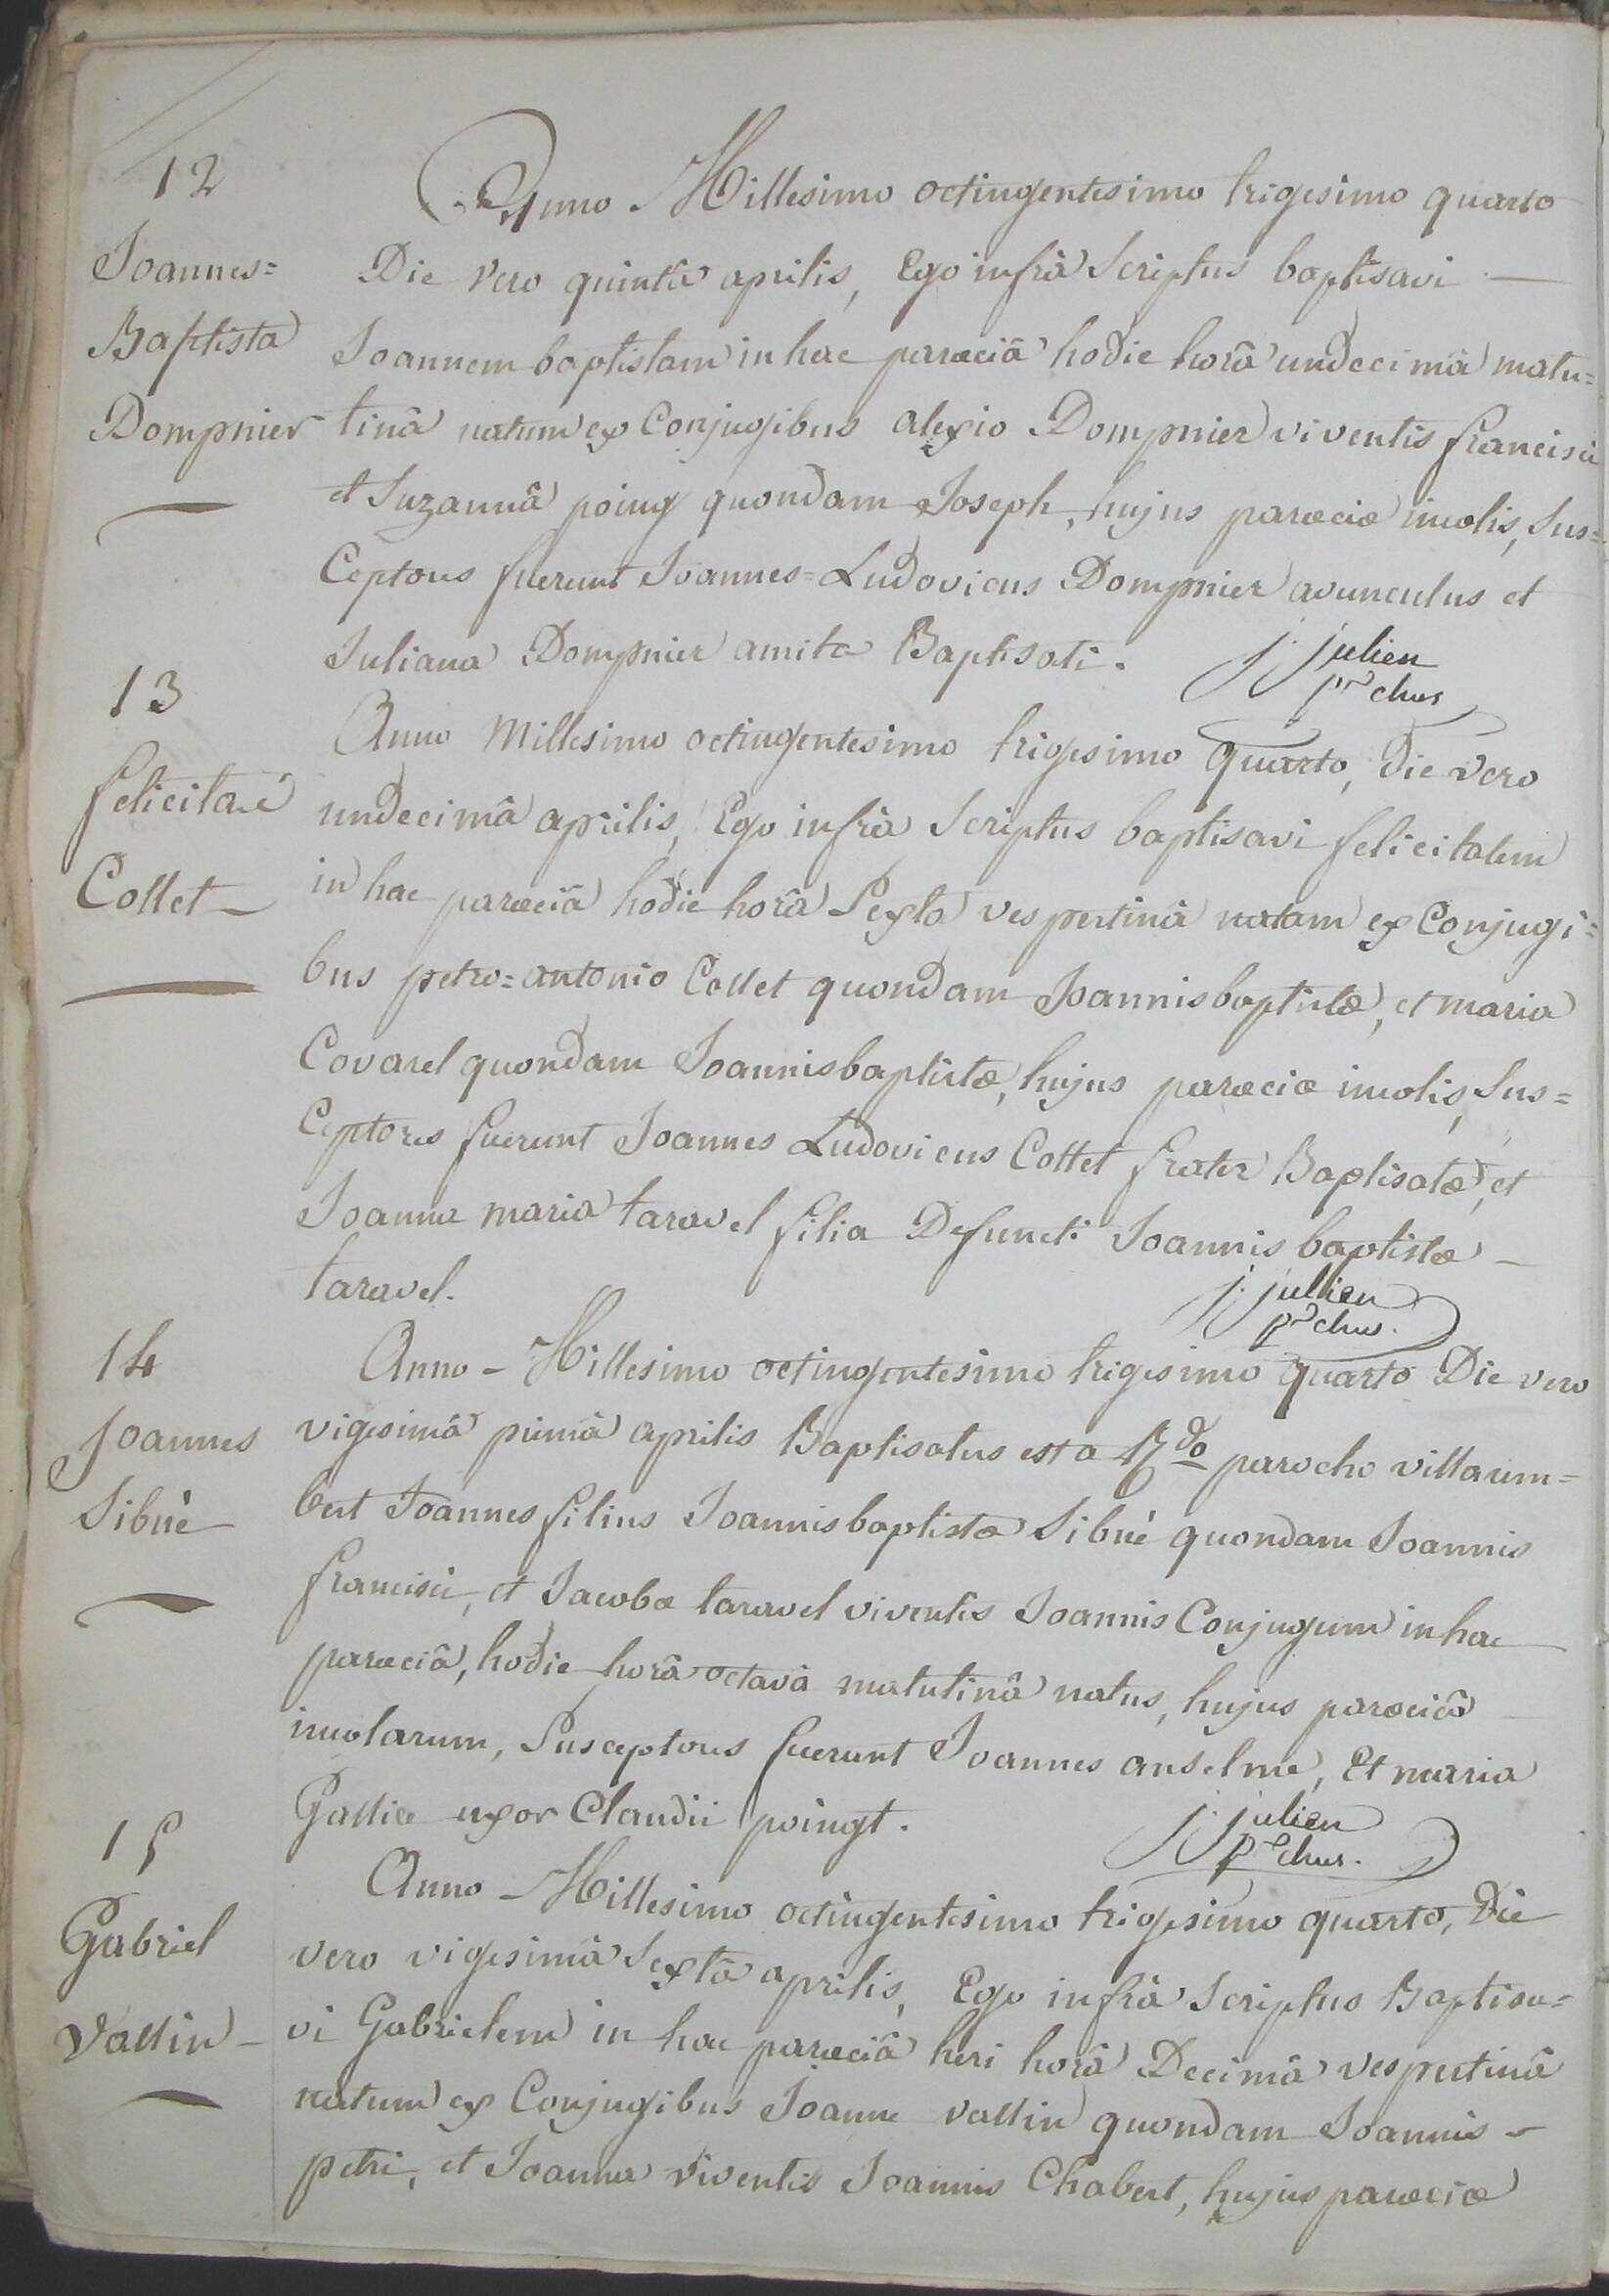 12
Joannes=
Baptista
Dompnier
Anno Millesimo octingentesimo trigesimo quarto
Die vero quintâ aprilis, Ego infrà Scriptus baptisavi —
Joannem baptistam in hac parœciâ hodie horâ undecimâ matu=
tinâ natum ex Conjugibus alexio Dompnier viventis francisci
et Suzannâ poing quondam Joseph, hujus parœciæ incolis, Sus=
Ceptores fuerunt Joannes=Ludovicus Dompnier avunculus et
Juliana Dompnier amita Baptisati.
j. julien
13
felicitas
Collet —
Anno Millesimo octingentesimo trigesimo quarto, die vero
undecimâ aprilis, Ego infrà Scriptus baptisavi felicitatem
in hac parœciâ hodie horâ Sexta vespertinâ natam ex Conjugi=
bus petro=antonio Collet quondam Joannisbaptistæ, et maria
Covarel quondam Joannisbaptistæ, hujus parœciæ incolis, Sus=
Ceptores fuerunt Joannes Ludovicus Collet frater Baptisatæ, et
Joanna maria taravel filia Defuncti Joannis baptistæ —
taravel.
j. julien
14
Joannes
Sibuè
Anno - Millesimo octingentesimo trigesimo quarto Die vero
vigesimâ primâ aprilis Baptisatus est a Rdo parocho villarem=
bert Joannes filius Joannisbaptistæ Sibuè quondam Joannis
francisci, et Jacobæ taravel viventis Joannis Conjugum in hac
parœciâ, hodie horâ octavâ matutinâ natus, hujus parœciæ
incolarum, Susceptores fuerunt Joannes anselme, Et maria
Gallice uxor Claudii poingt.
j. julien
15
Gabriel
Vallin —
Anno - Millesimo octingentesimo trigesimo quarto, Die
vero vigesimâ Sextâ aprilis, Ego infrà Scriptus Baptisa=
vi Gabrielem in hac parœciâ heri horâ Decimâ vespertinâ
natum ex Conjugibus Joanne vallin quondam Joannis —
petri, et Joanna viventis Joannis Chabert, hujus parœciæ